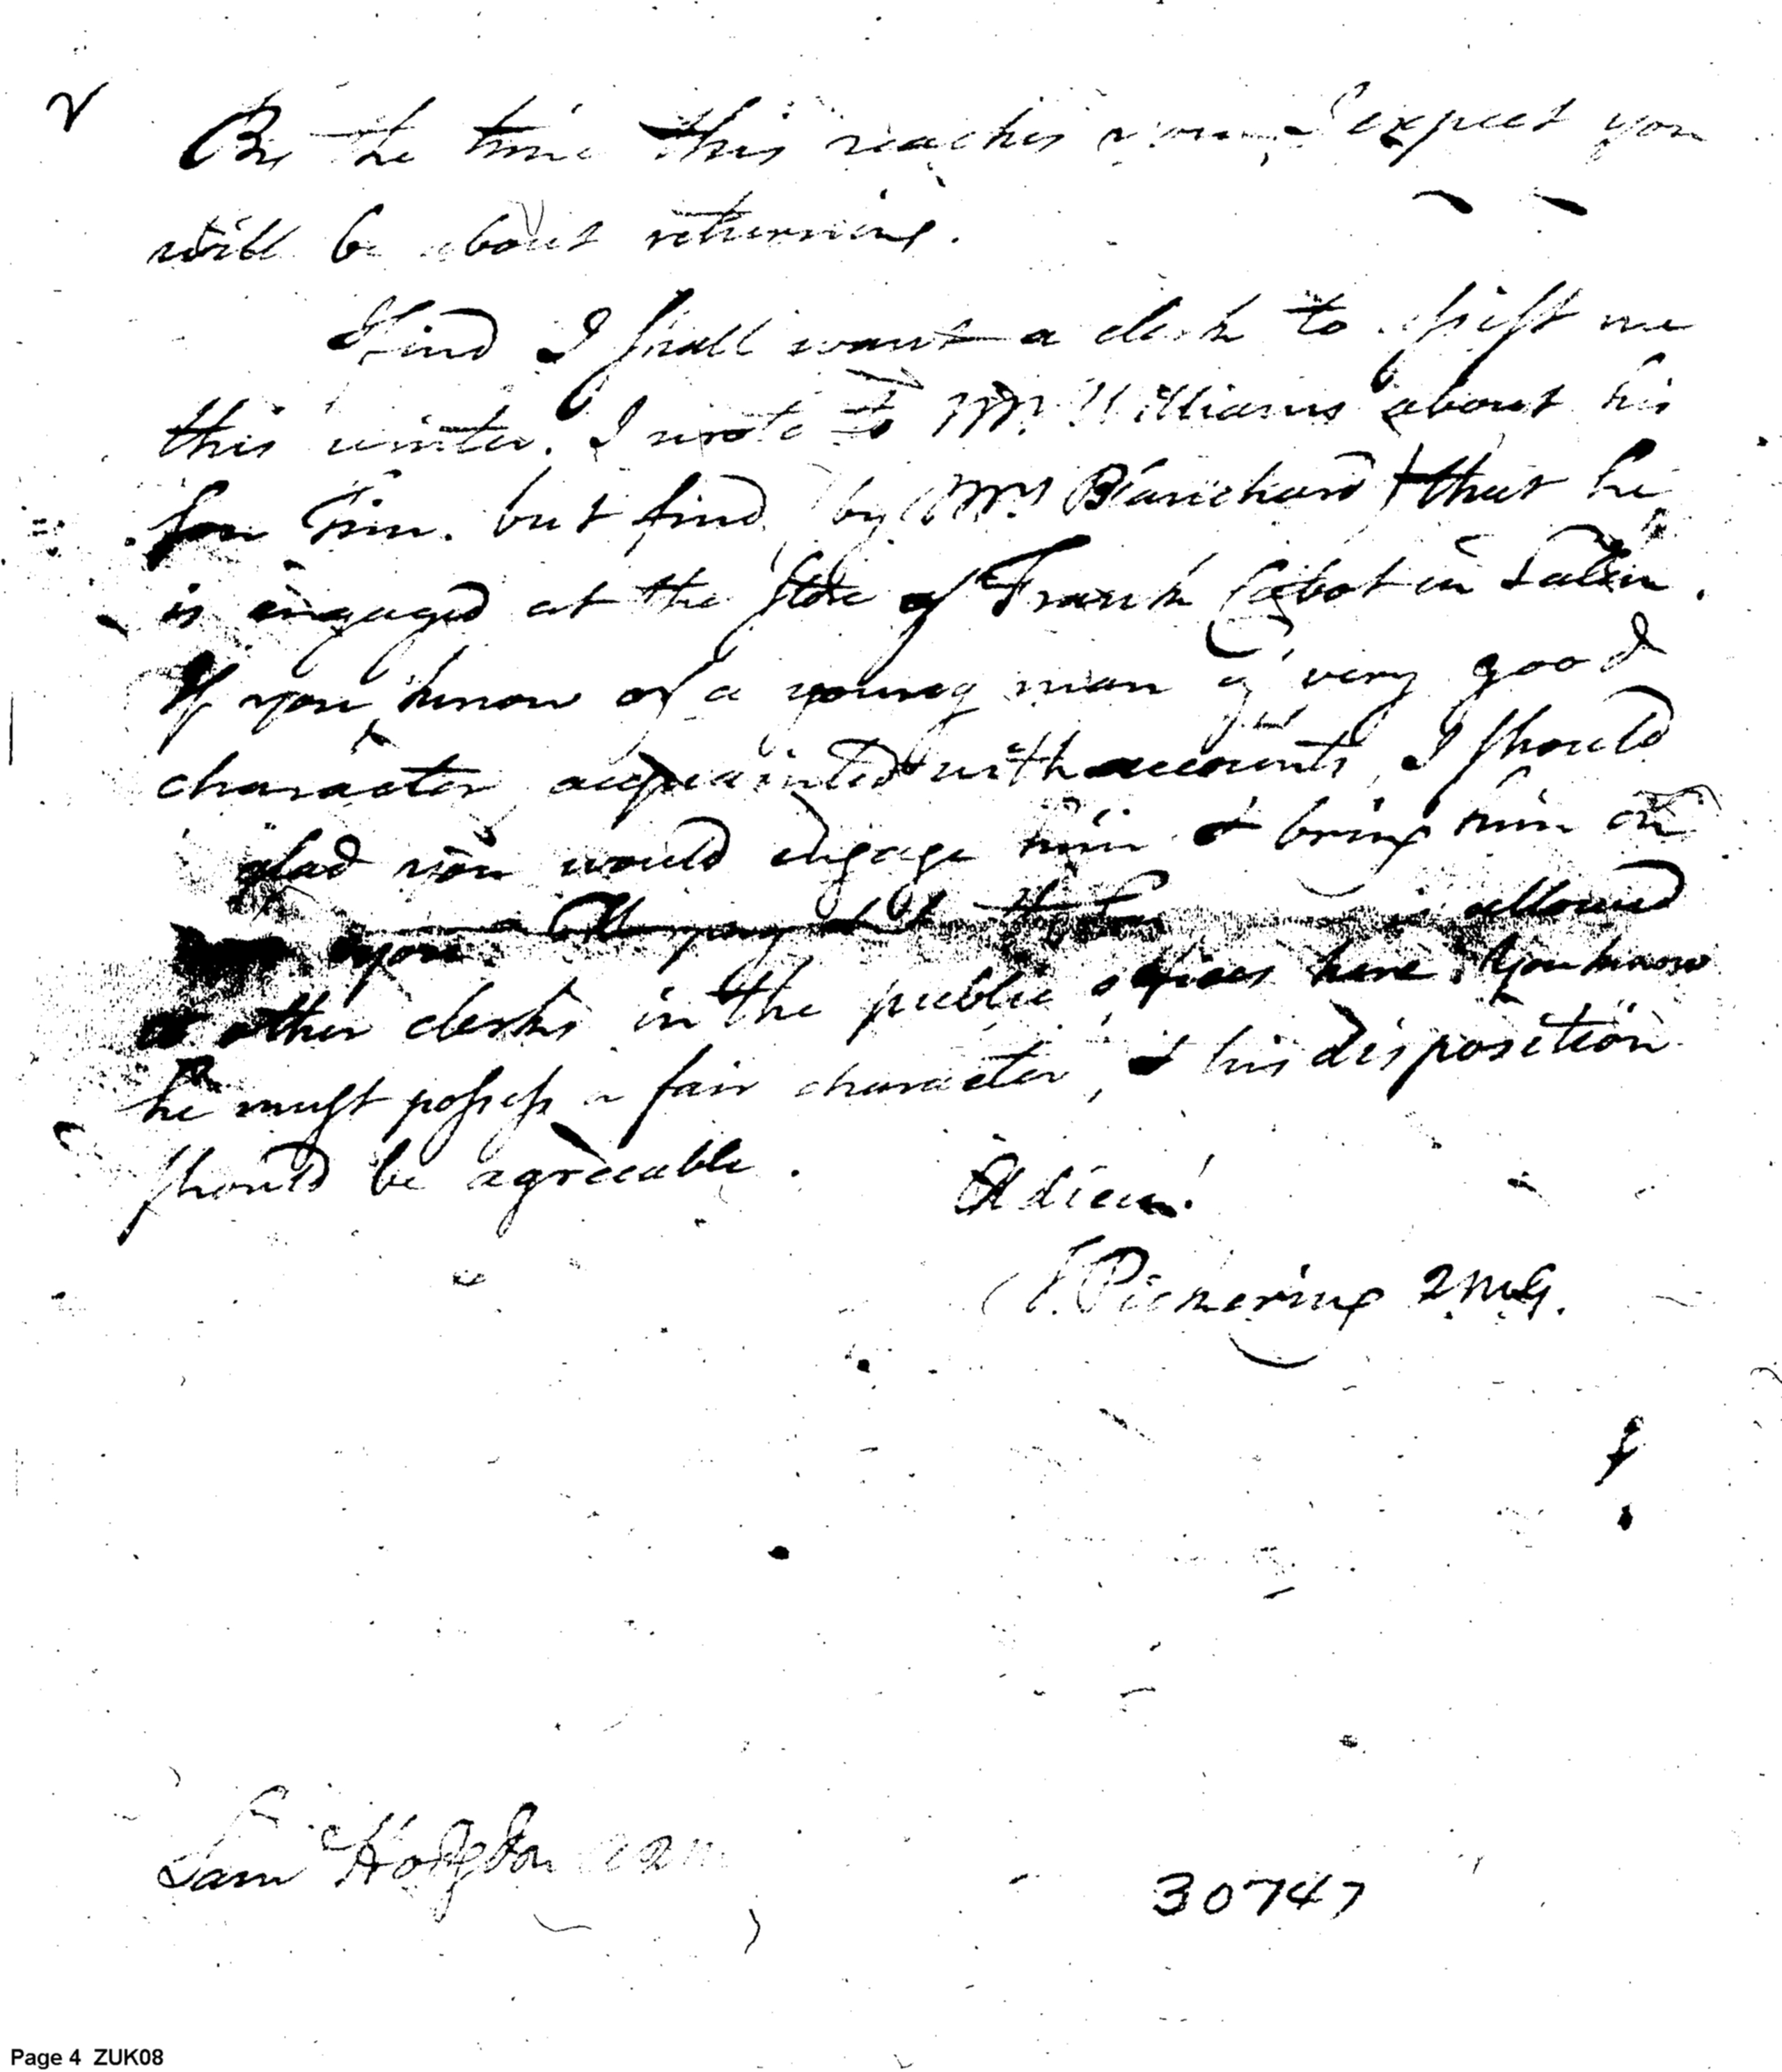 By the time this reaches you, I expect you
will be about returning.
I find I shall want a clerk to assist me
this winter. I wrote to Mr. Williams about his
son Tim. but find by Mrs Blanchard that he
is engaged at the store of Frank Cabot in Salem.
If you know of a young man of very good
character, acquainted with accounts, I should
glad you would engage him & bring him on
you. The pay is allowed
other clerks in the public offices here. You know
he must possess a fair character, & his disposition
should be agreeable. Adieu!
T. Pickering QMG.
Sam Hodgdon
30747
Page 4 ZUK08